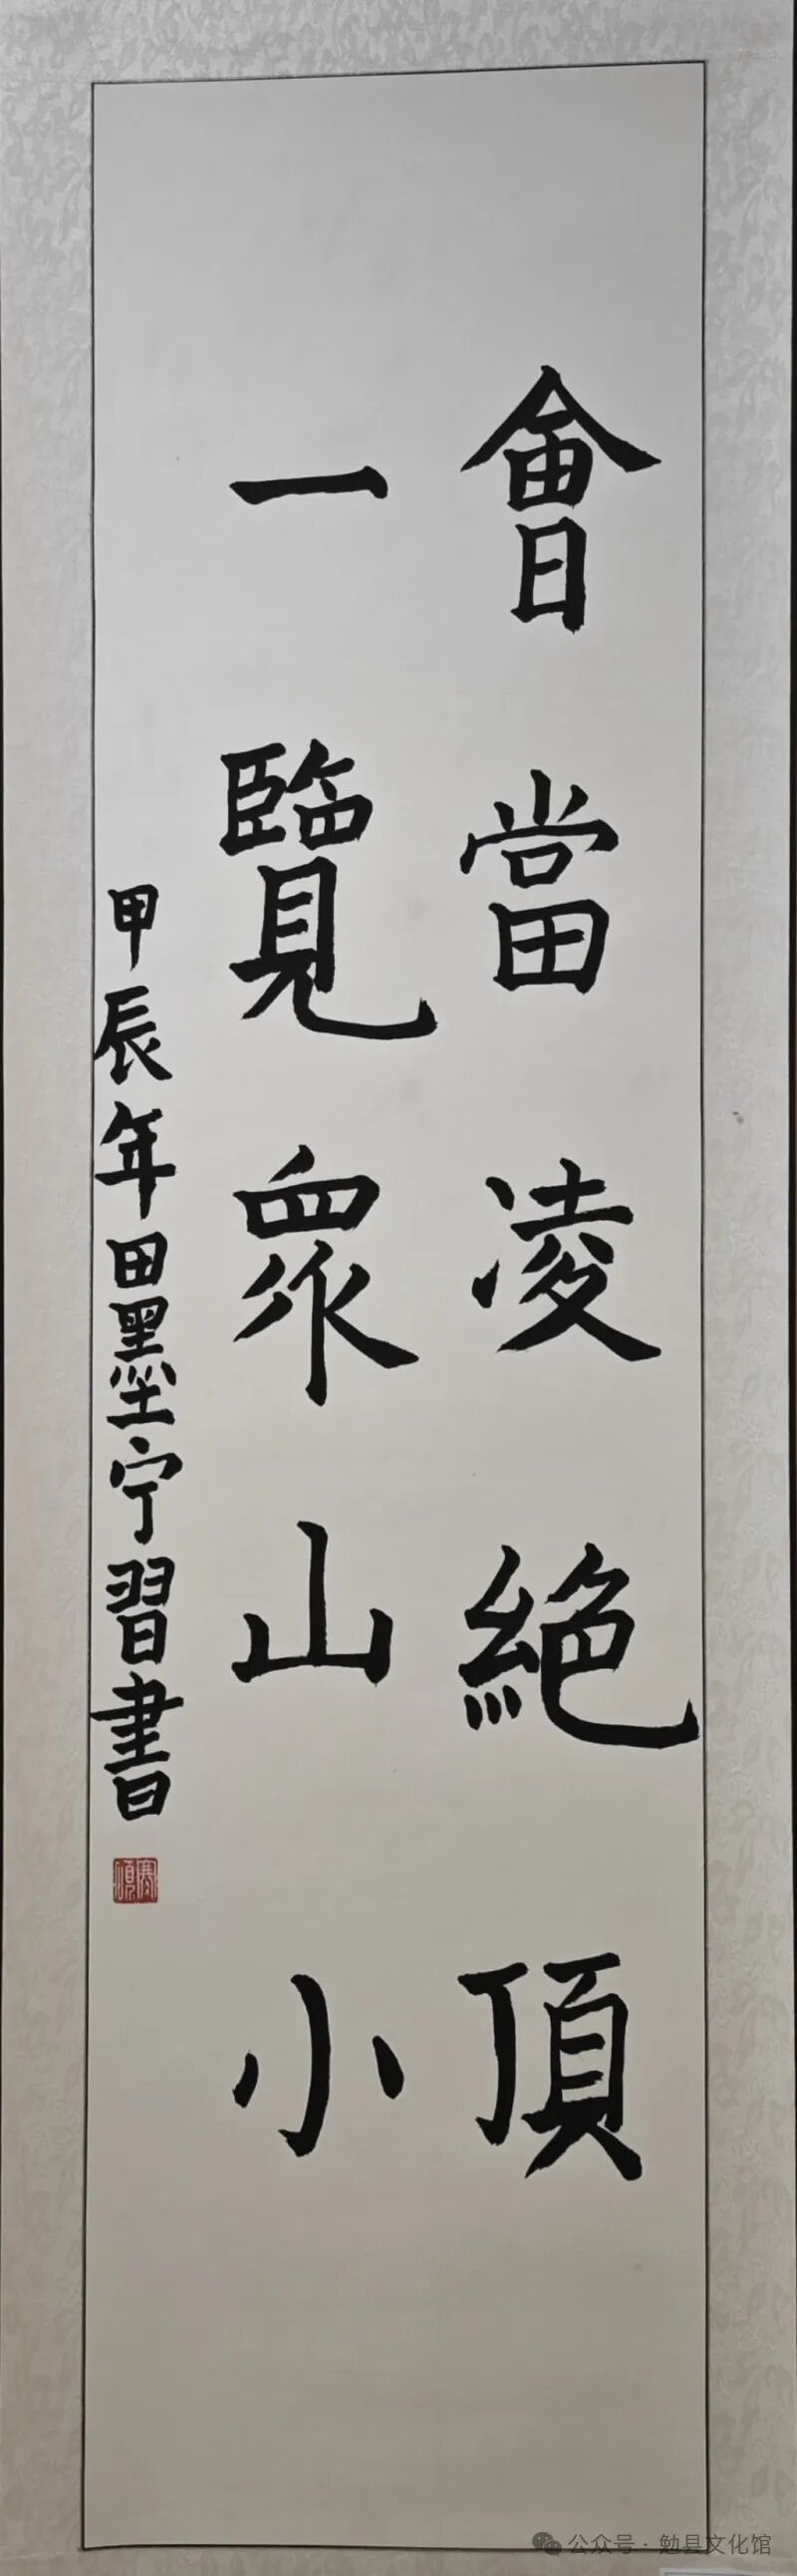 會當凌絕頂
一覽眾山小
甲辰年田墨宁習書
公众号·勉县文化馆